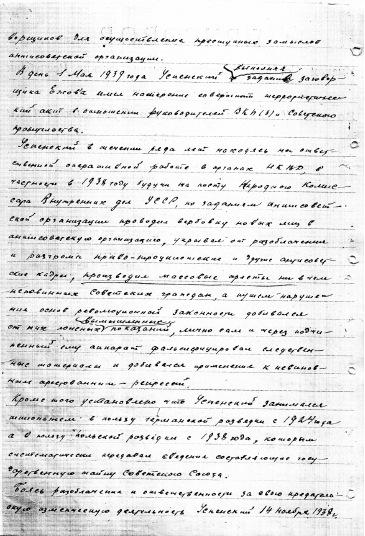 ворщиков для осуществления преступных замыслов
антисоветской организации.
В день 1 Мая 1939 года Успенский выполняя
задание заговор-
щика Ежова имел намерение совершить террористичес-
кий акт в отношении руководителей ВКП(б) и Советского
правительства.
Успенский в течении ряда лет находясь на ответ-
ственной оперативной работе в органах НКВД, в
частности в 1938 году будучи на посту Народного Комис-
сара Внутренних дел УССР, по заданиям антисовет-
ской организации проводил вербовку новых лиц в
антисоветскую организацию, укрывал от разоблачения
и разгрома право-троцкистские и другие антисовет-
ские кадры, производил массовые аресты ни в чем
неповинных советских граждан, а путем наруше-
ния основ революционной законности добивался
вымышленных
от них показаний, лично сам и через подчи-
ненный ему аппарат фальсифицировал следствен-
ные материалы и добивался применения к невинов-
ным арестованным – репрессий.
Кроме того установлено что Успенский занимался
шпионажем в пользу германской разведки с 1924 года
а в пользу польской разведки с 1938 года, которым
систематически передавал сведения составляющие госу-
дарственную тайну Советского Союза.
Боясь разоблачения и ответственности за свою предатель-
скую изменническую деятельность Успенский 14 ноября 1938 г.